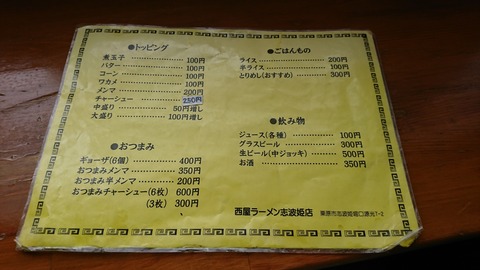 ●トッピング
煮玉子 100円
バター 100円
コーン 100円
ワカメ 100円
メンマ 200円
チャーシュー 250円
中盛り 50円増し
大盛り 100円増し
●おつまみ
ギョーザ(6個) 400円
おつまみメンマ 350円
おつまみ半メンマ 200円
おつまみチャーシュー(6枚) 600円
(3枚) 300円
●ごはんもの
ライス 200円
半ライス 100円
とりめし(おすすめ) 300円
●飲み物
ジュース(各種) 100円
グラスビール 300円
生ビール(中ジョッキ) 500円
お酒 350円
西屋ラーメン志波姫店